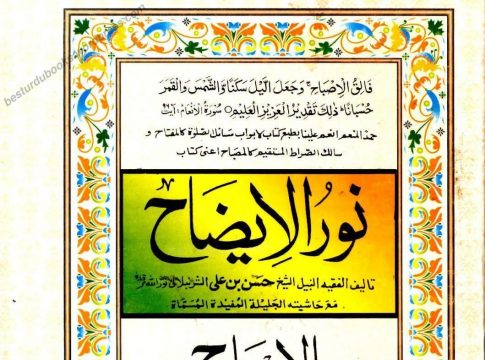 besturdubooks.wordpress.com
فَالِقُ الْإِصْبَاحِ ۚ وَجَعَلَ الَّيْلَ سَكَنًا وَّالشَّمْسَ وَالْقَمَرَ
حُسْبَانًا ۚ ذٰلِكَ تَقْدِيْرُ الْعَزِيْزِ الْعَلِيْمِ ○ سُوْرَةُ الْأَنْعَام: آیت
حمد المنعم انعم علينا بطبع كتاب لابواب مسائل الصلوة كالمفتاح و
سالك الصراط المستقيم كالمصباح اعنى كتاب
نُورُ الإِيضَاح
تاليف الفقيه النبيل الشيخ حسن بن على الشرنبلالى نور الله
مع حاشيته الجليلة المفيدة المسماة